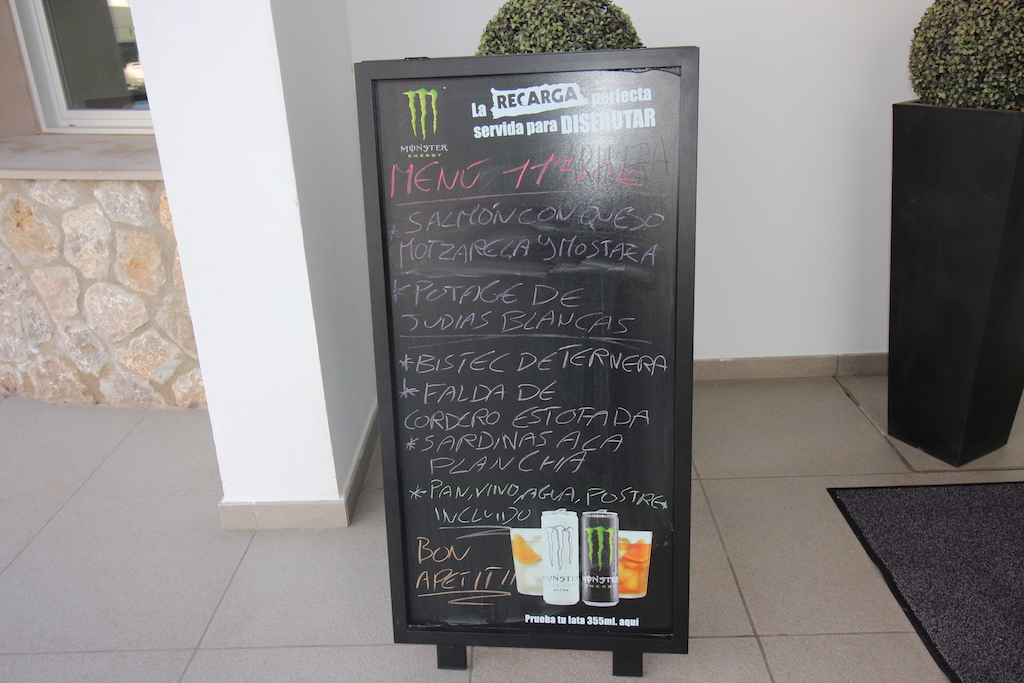 La RECARGA perfecta
servida para DISFRUTAR
MONSTER
ENERGY
MENÚ 11'
* SALMÓN CON QUESO
MOTZARELA Y MOSTAZA
* POTAGE DE
JUDIAS BLANCAS
* BISTEC DE TERNERA
* FALDA DE
CORDERO ESTOFADA
* SARDINAS A LA
PLANCHA
* PAN, VINO, AGUA, POSTRE *
INCLUIDO
BON
APETIT!!
MONSTER
ULTRA
MONSTER
ENERGY
Prueba tu lata 355ml. aquí